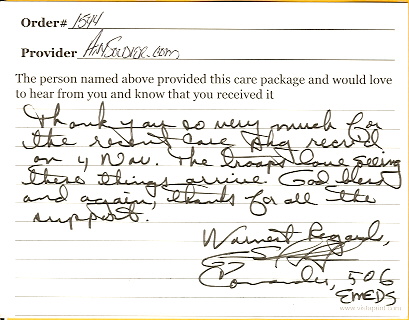 Order# 1544
Provider AnySoldier.com
The person named above provided this care package and would love
to hear from you and know that you received it
Thank you so very much for
the recent care pkg rec'd
on 4 Nov. The troops love seeing
these things arrive. God bless
and again, thanks for all the
support.
Warmest Regards,
Commander, 506
EMEDS